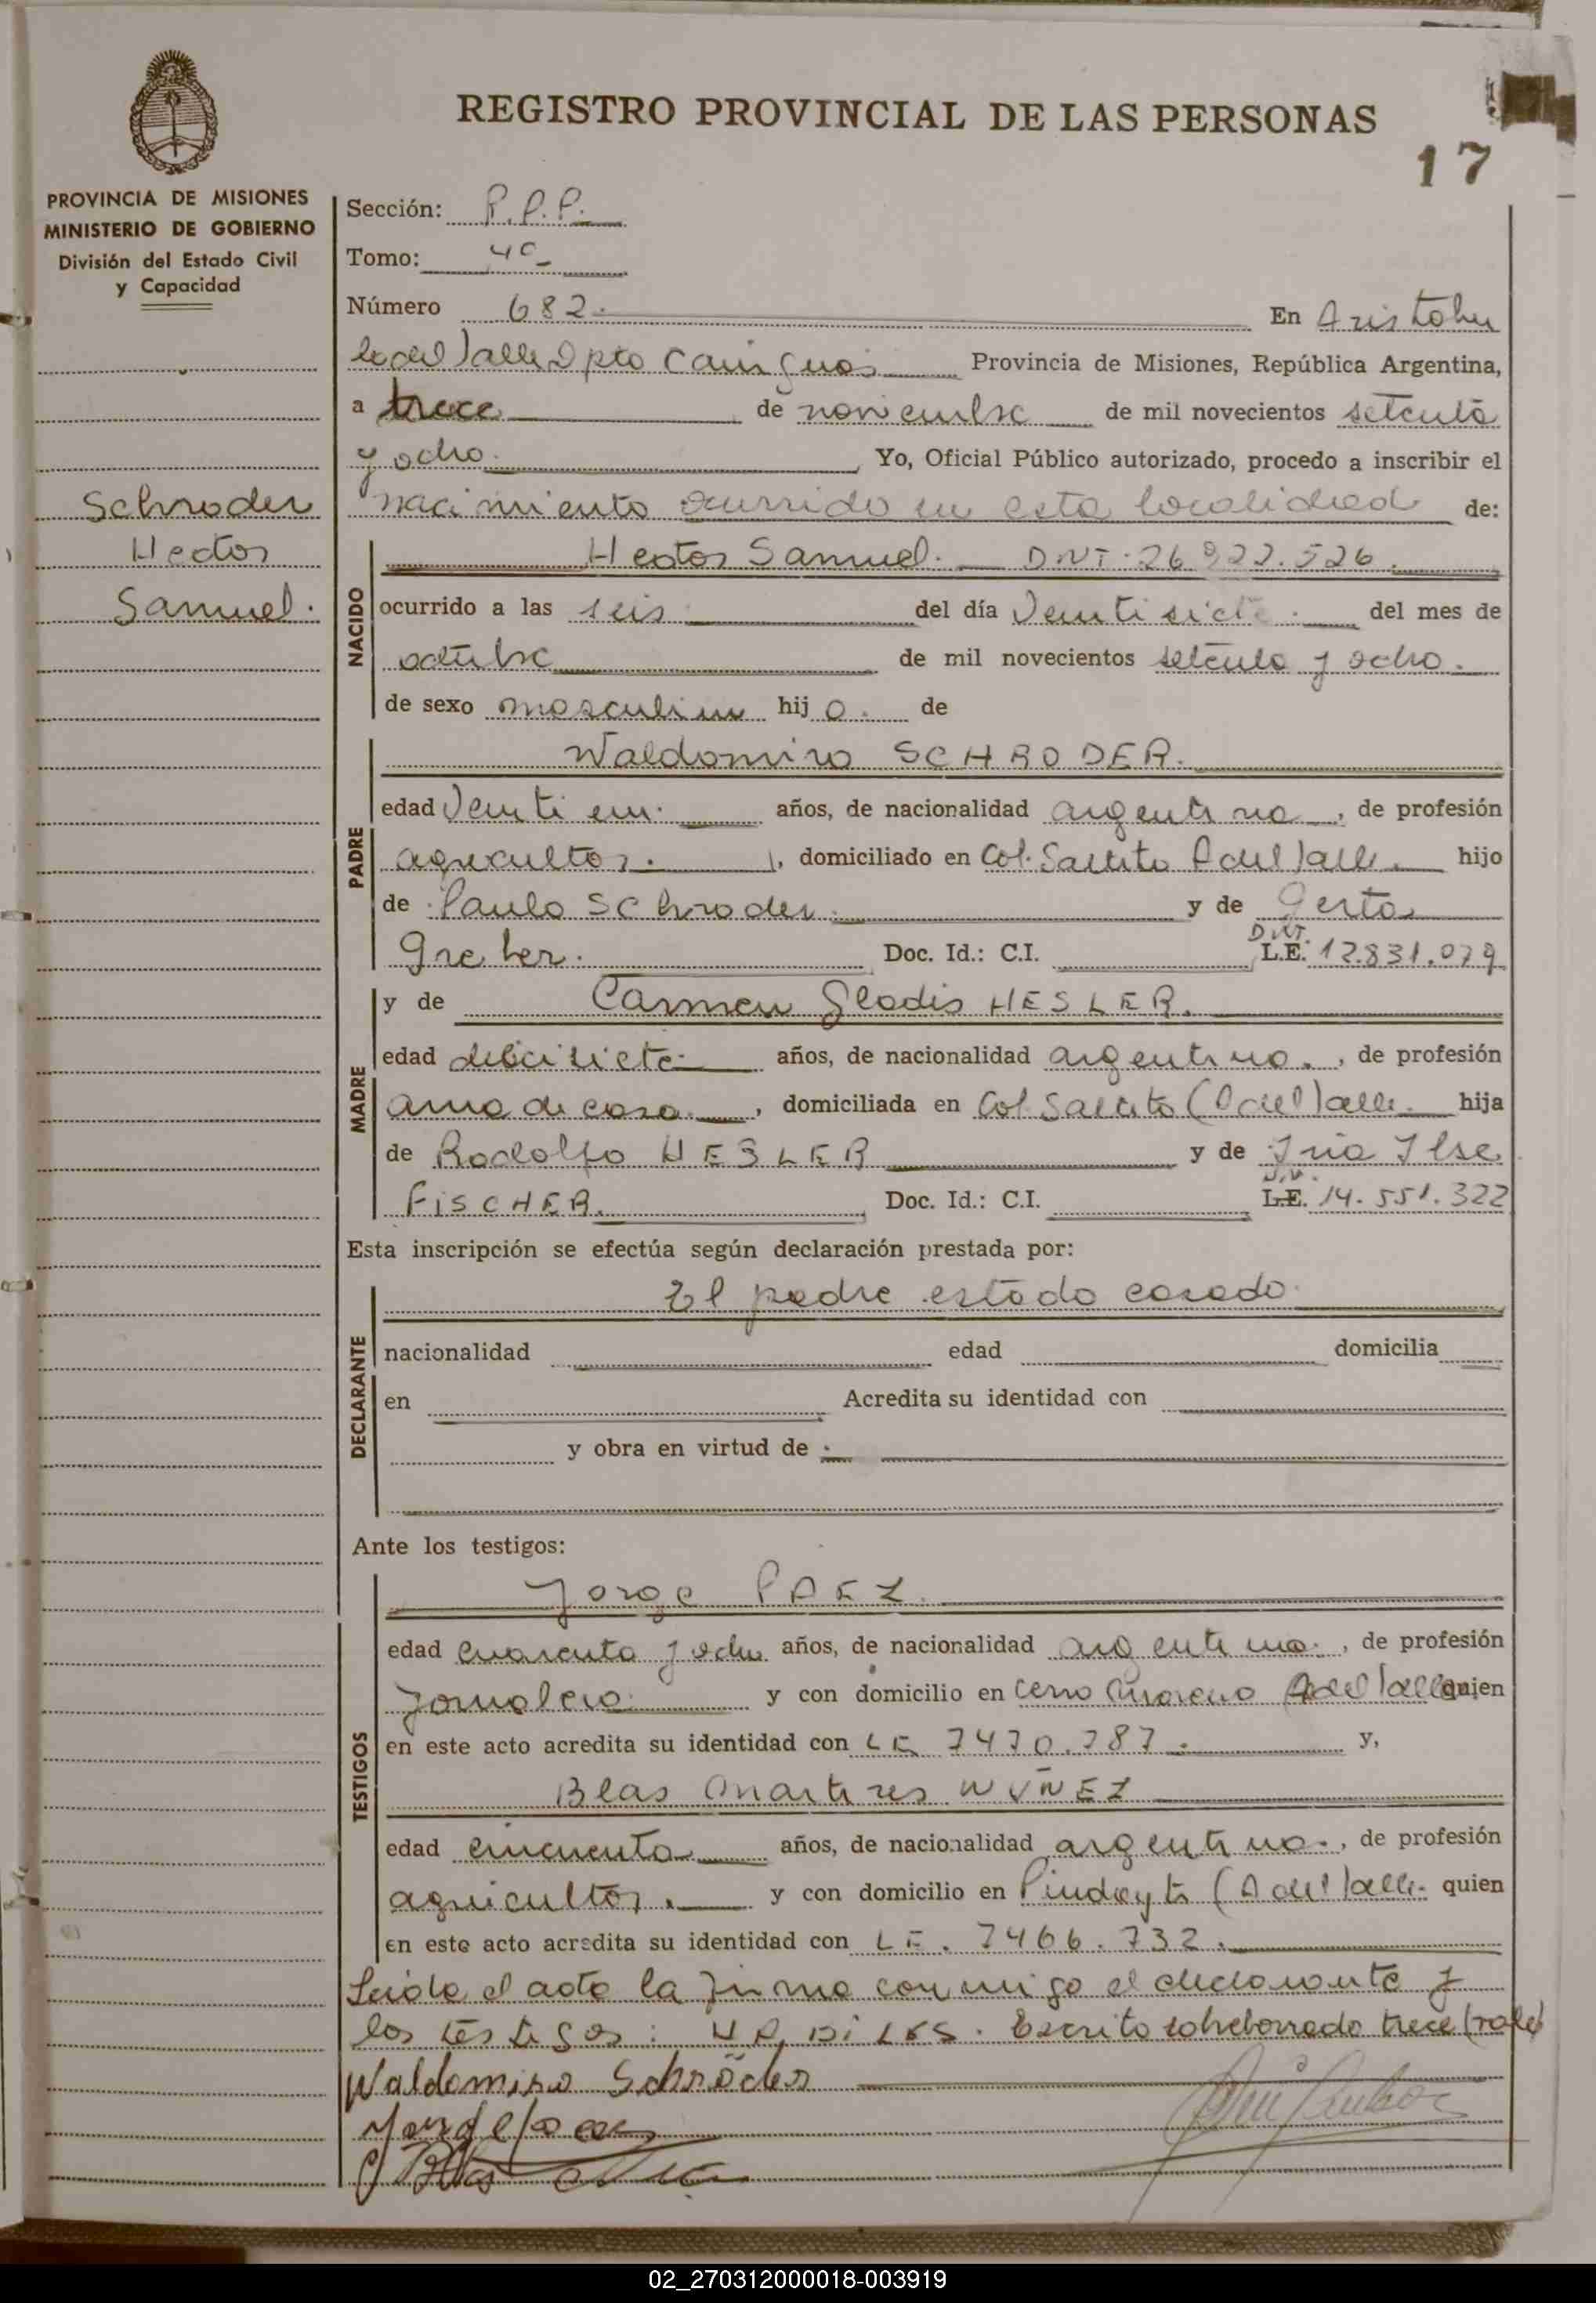 REGISTRO PROVINCIAL DE LAS PERSONAS
17
PROVINCIA DE MISIONES
MINISTERIO DE GOBIERNO
División del Estado Civil
y Capacidad
Schroder
Hector
Samuel.
Sección: R.P.P.
Tomo: 4º
Número 682. En Aristobu
lo del Valle Dpto Cainguas Provincia de Misiones, República Argentina,
a trece de noviembre de mil novecientos setenta
y ocho. Yo, Oficial Público autorizado, procedo a inscribir el
nacimiento ocurrido en esta localidad de:
NACIDO
Hector Samuel. DNI. 26.922.526.
ocurrido a las seis del día Veinti siete. del mes de
octubre de mil novecientos setenta y ocho.
de sexo masculino hij o. de
PADRE
Waldomiro SCHRODER.
edad Veinti un. años, de nacionalidad argentina, de profesión
agricultor., domiciliado en Col. Saltito A del Valle. hijo
de Paulo Schroder. y de Gerta
Greber. Doc. Id.: C.I. DNI. L.E. 12.831.079
MADRE
y de Carmen Gladis HESLER.
edad diecisiete. años, de nacionalidad argentina., de profesión
ama de casa., domiciliada en Col. Saltito (A del Valle. hija
de Rodolfo HESLER y de Iria Ilse
FISCHER. Doc. Id.: C.I. L.E. 14.551.322
Esta inscripción se efectúa según declaración prestada por:
DECLARANTE
El padre estado casado.
nacionalidad edad domicilia
en Acredita su identidad con
y obra en virtud de
Ante los testigos:
TESTIGOS
Jorge PAEZ.
edad cuarenta y ocho años, de nacionalidad argentina., de profesión
Jornalero. y con domicilio en Cerro Moreno A del Valle quien
en este acto acredita su identidad con LE 7470.787. y,
Blas Martires NUÑEZ
edad cincuenta años, de nacionalidad argentina., de profesión
agricultor. y con domicilio en Pindayti (A del Valle. quien
en este acto acredita su identidad con LE. 7466.732.
Leida el acta la firma conmigo el declarante y
los testigos: Escrito sobreborrado trece (vale)
Waldomiro Schröder
Jorge Paez
Blas
02_270312000018-003919